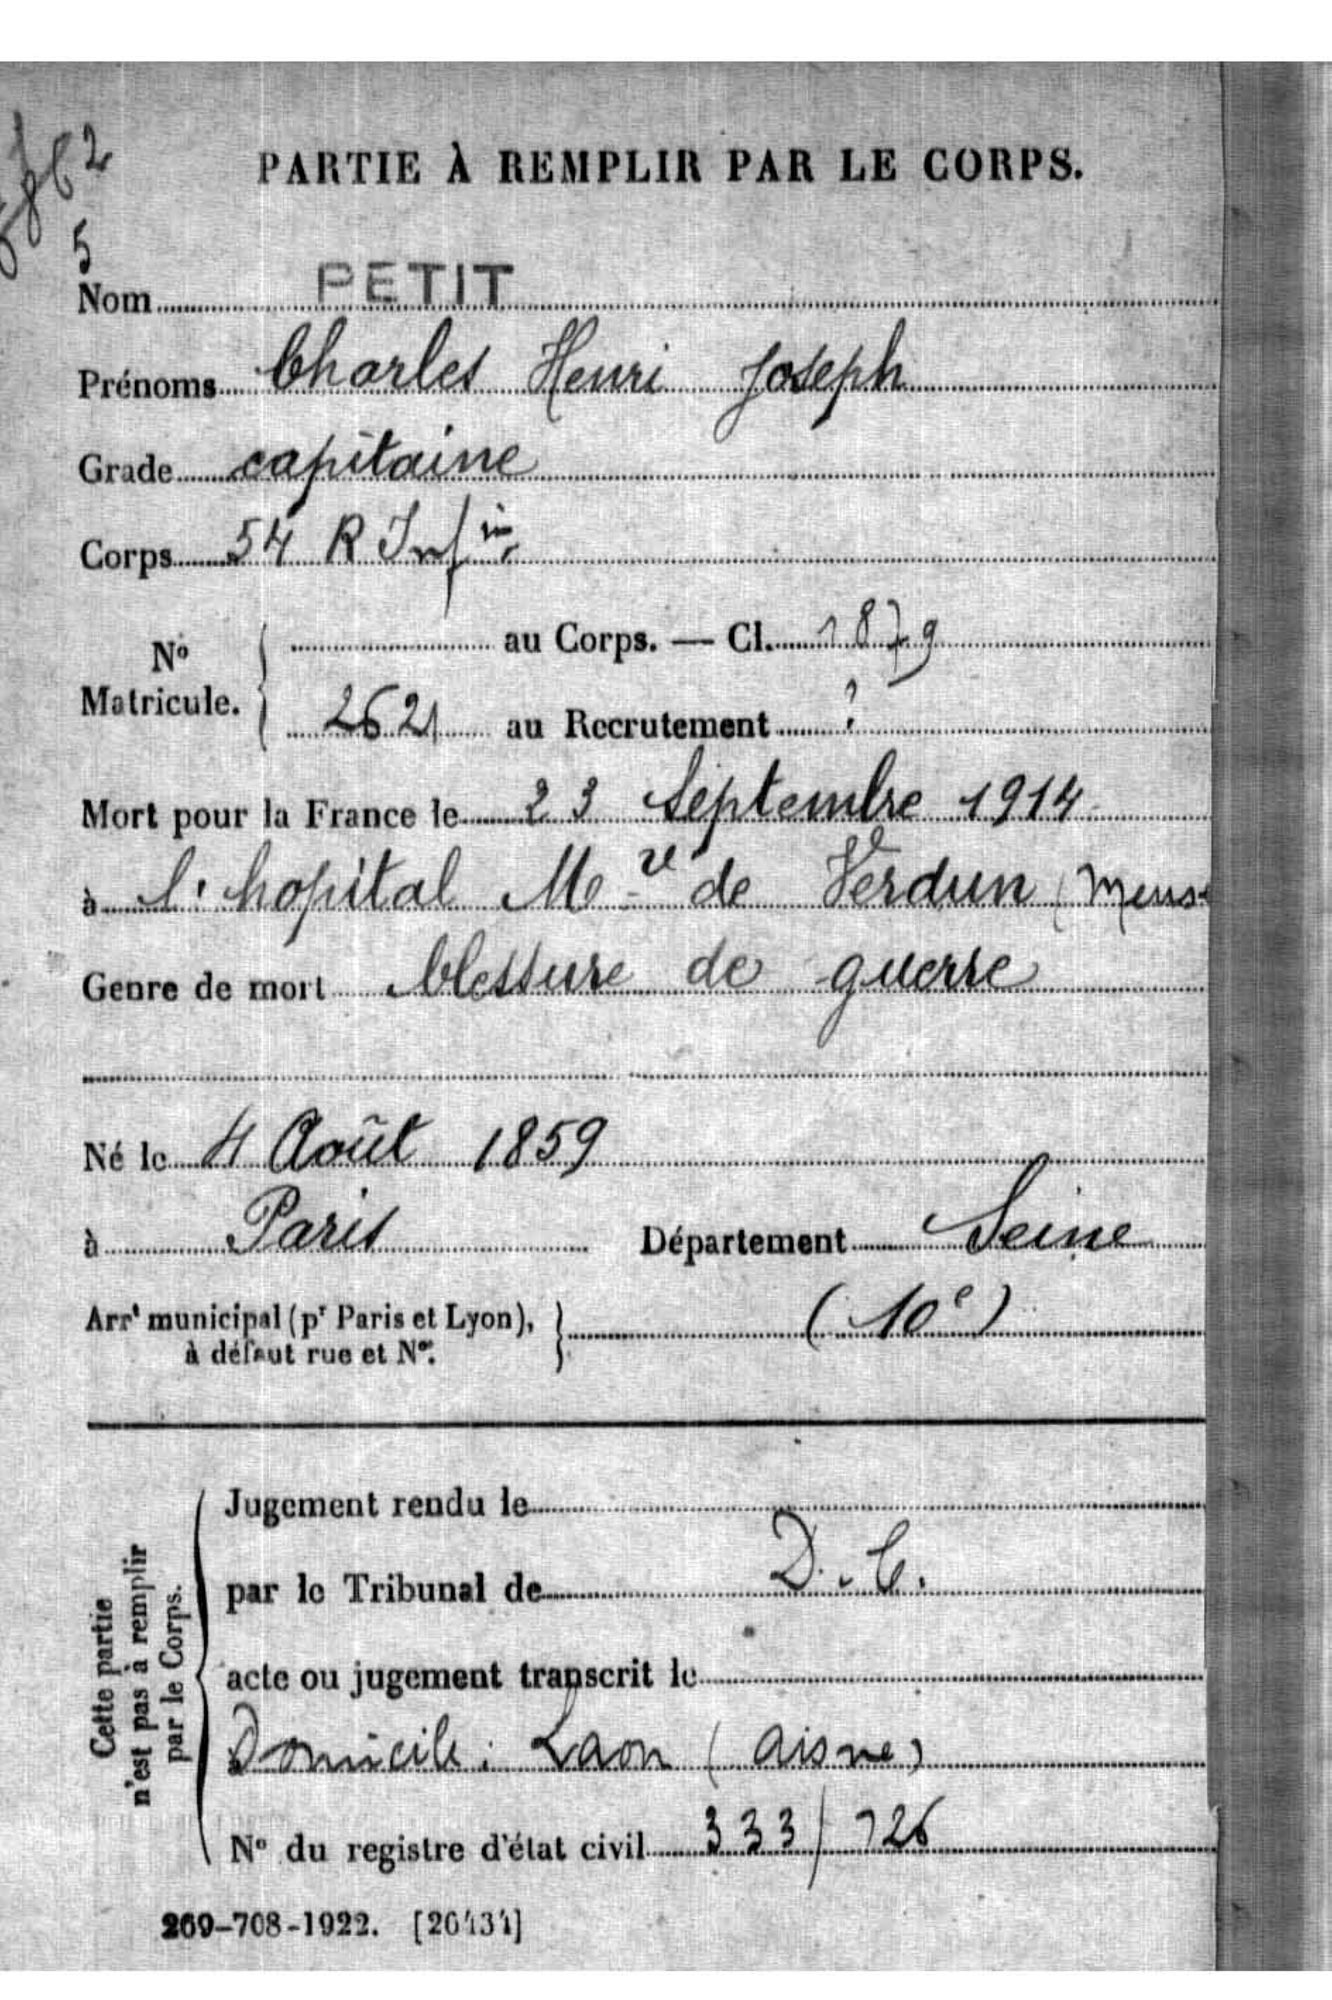 PARTIE À REMPLIR PAR LE CORPS.
5
Nom PETIT
Prénoms Charles Henri Joseph
Grade capitaine
Corps 54 R Inf ie
No Matricule. { au Corps. — Cl. 1879
2621 au Recrutement ?
Mort pour la France le 23 Septembre 1914
à l'hopital Mre de Verdun (Meuse
Genre de mort blessure de guerre
Né le 4 Août 1859
à Paris Département Seine
Arrt municipal (pr Paris et Lyon), à défaut rue et No. } (10e)
Cette partie n'est pas à remplir par le Corps.
Jugement rendu le
par le Tribunal de D. C.
acte ou jugement transcrit le
Domicile: Laon (Aisne)
No du registre d'état civil 333/726
269-708-1922. [26434]